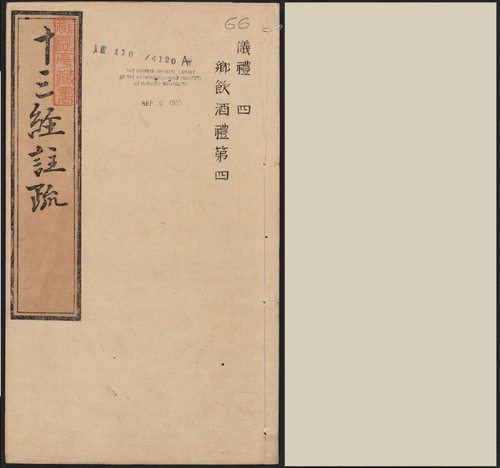 66
儀禮 四
鄉飲酒禮第四
110 /4120 A
THE CHINESE-JAPANESE LIBRARY
OF THE HARVARD-YENCHING INSTITUTE
AT HARVARD UNIVERSITY
SEP 1955
十三經註疏